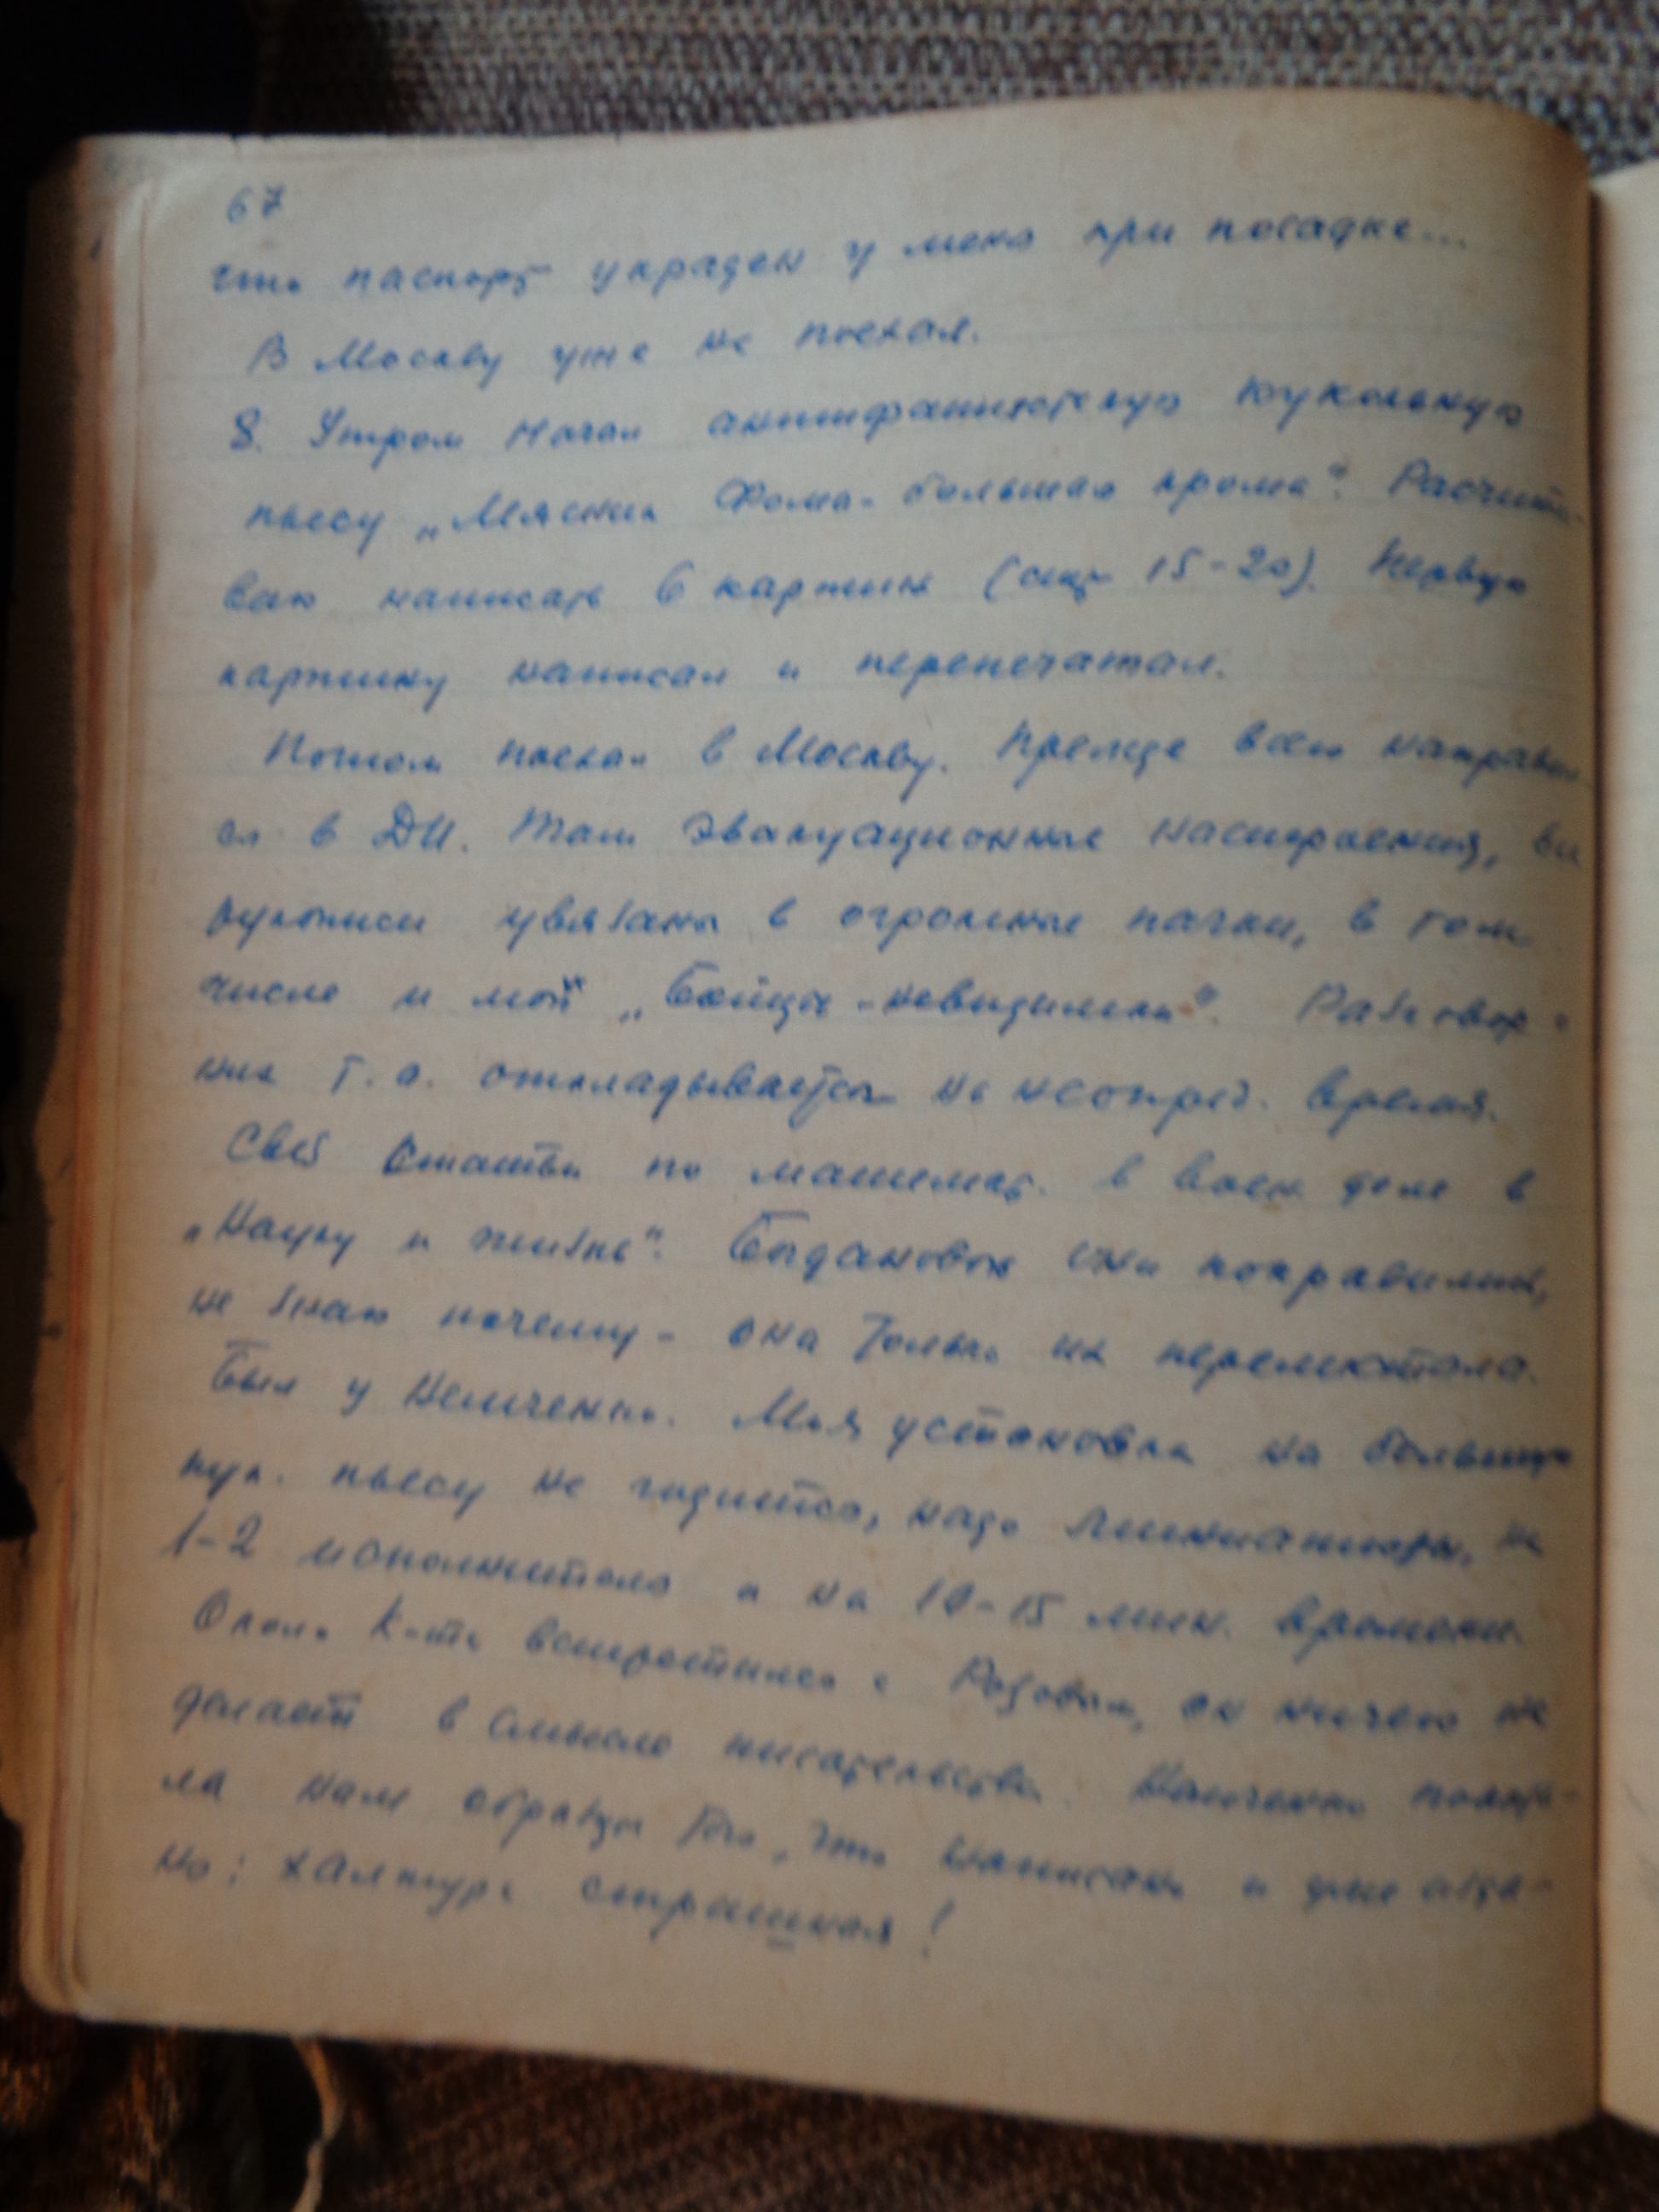 67
что паспорт украден у меня при посадке...
В Москву уже не поехал.
8. Утром начал антифашистскую кукольную
пьесу „Мясник Фома - большая крома“. Расчиты-
ваю написать 6 картин (стр. 15-20). Первую
картину написал и перепечатал.
Потом поехал в Москву. Прежде всего направил-
ся в ДИ. Там эвакуационные настроения, все
рукописи увязаны в огромные пачки, в том
числе и мой „Бойцы-невидимки“. Разговор
них т. о. откладывается на неопред. время.
Свез статьи по математ. в воен. деле в
„Науку и жизнь“. Богдановой они понравились,
не знаю почему - она только их перелистала.
Был у Немченко. Моя установка на большую
кук. пьесу не годится, надо миниатюры, на
1-2 исполнителя и на 10-15 мин. времени.
Около К-та встретился с Розовым, он ничего не
делает в смысле писательства. Немченко показа-
ла нам образцы того, что написано и уже изда-
но: халтура страшная!